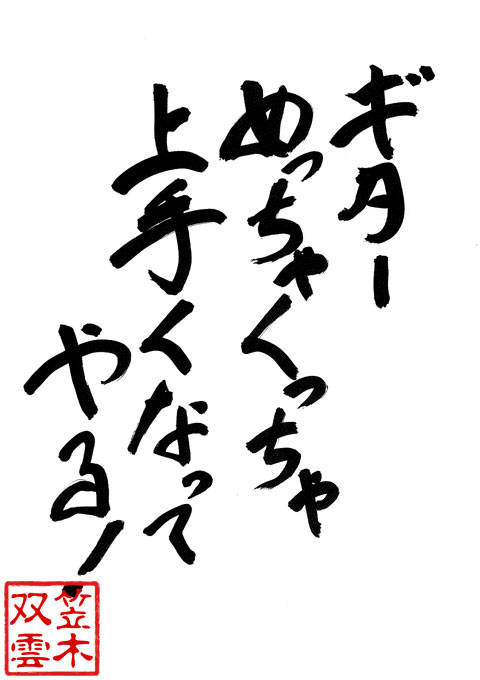 ギター
めっちゃくっちゃ
上手くなって
やる！
笠木
双雲